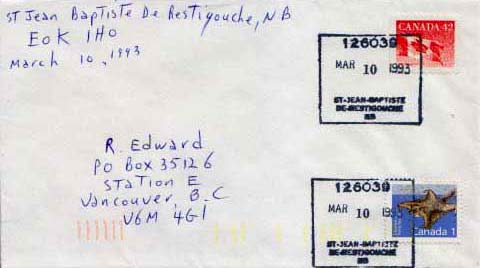 ST Jean Baptiste De Restigouche, N.B
E0K 1H0
March 10, 1993
CANADA 42
126039
MAR 10 1993
ST-JEAN-BAPTISTE
DE-RESTIGOUCHE
NB
R. Edward
PO Box 35126
Station E
Vancouver, B.C
V6M 4G1
126039
MAR 10 1993
ST-JEAN-BAPTISTE
DE-RESTIGOUCHE
NB
Canada 1